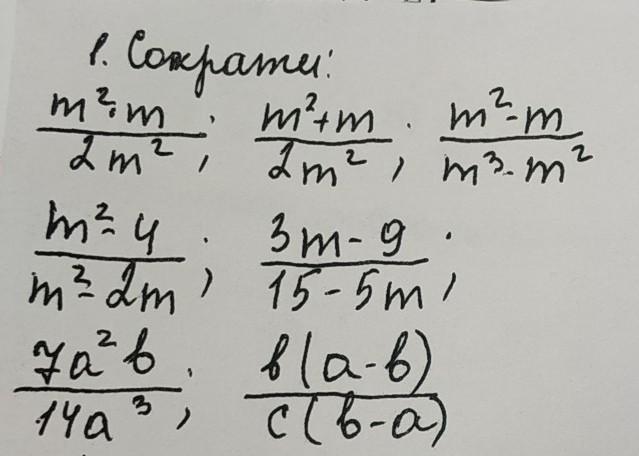 1. Сократи:
m²·m / 2m² ; m²+m / 2m² ; m²-m / m³-m²
m²-4 / m²-2m ; 3m-9 / 15-5m ;
7a²b / 14a³ ; b(a-b) / c(b-a)